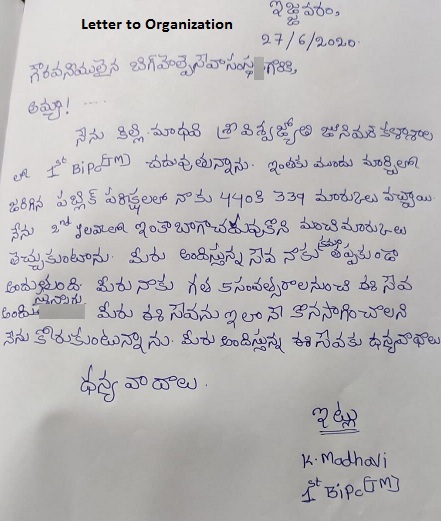 Letter to Organization
ఇజ్జవరం,
27/6/2020.
గౌరవనీయులైన బిగ్‌హెల్ప్ సేవాసంస్థ గారికి,
అమ్మా! ....
నేను కిల్లి మాధవి శ్రీ విశ్వజ్యోతి జూనియర్ కళాశాల
లో 1st BiPc(TM) చదువుతున్నాను. ఇంతకు ముందు మార్చిలో
జరిగిన పబ్లిక్ పరీక్షలలో నాకు 440కి 339 మార్కులు వచ్చాయి.
నేను 2nd yearలో ఇంకా బాగా చదువుకొని మంచి మార్కులు
తెచ్చుకుంటాను. మీరు అందిస్తున్న సేవ నాకు తప్పకుండా
అందుతుంది. మీరు నాకు గత 5 సంవత్సరాలనుంచి ఈ సేవ
మీరు ఈ సేవను ఇలానే కొనసాగించాలని
నేను కోరుకుంటున్నాను. మీరు అందిస్తున్న ఈ సేవకు ధన్యవాదాలు
ధన్యవాదాలు.
ఇట్లు
K. Madhavi
1st BiPc(TM)